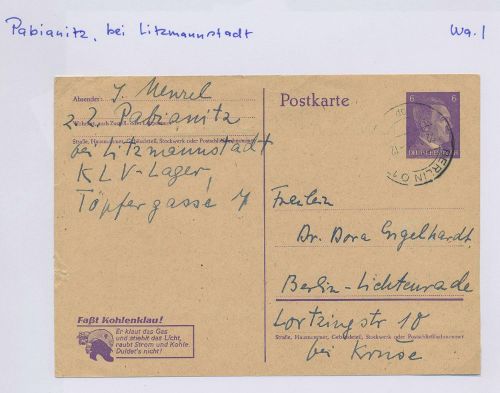 Pabianitz, bei Litzmannstadt
Wa. 1
Absender:
J. Menzel
z.Z. Pabianitz
Straße, Hausnummer, Gebäudeteil, Stockwerk oder Postschließfachnummer
bei Litzmannstadt
KLV-Lager,
Töpfergasse
Postkarte
6 6
DEUTSCHES REICH
BERLIN
Fräulein
Dr. Dora Engelhardt
Berlin-Lichtenrade
Lortzingstr 10
Straße, Hausnummer, Gebäudeteil, Stockwerk oder Postschließfachnummer
bei Kruse
Faßt Kohlenklau!
Er klaut das Gas
und stiehlt das Licht,
raubt Strom und Kohle.
Duldet's nicht!